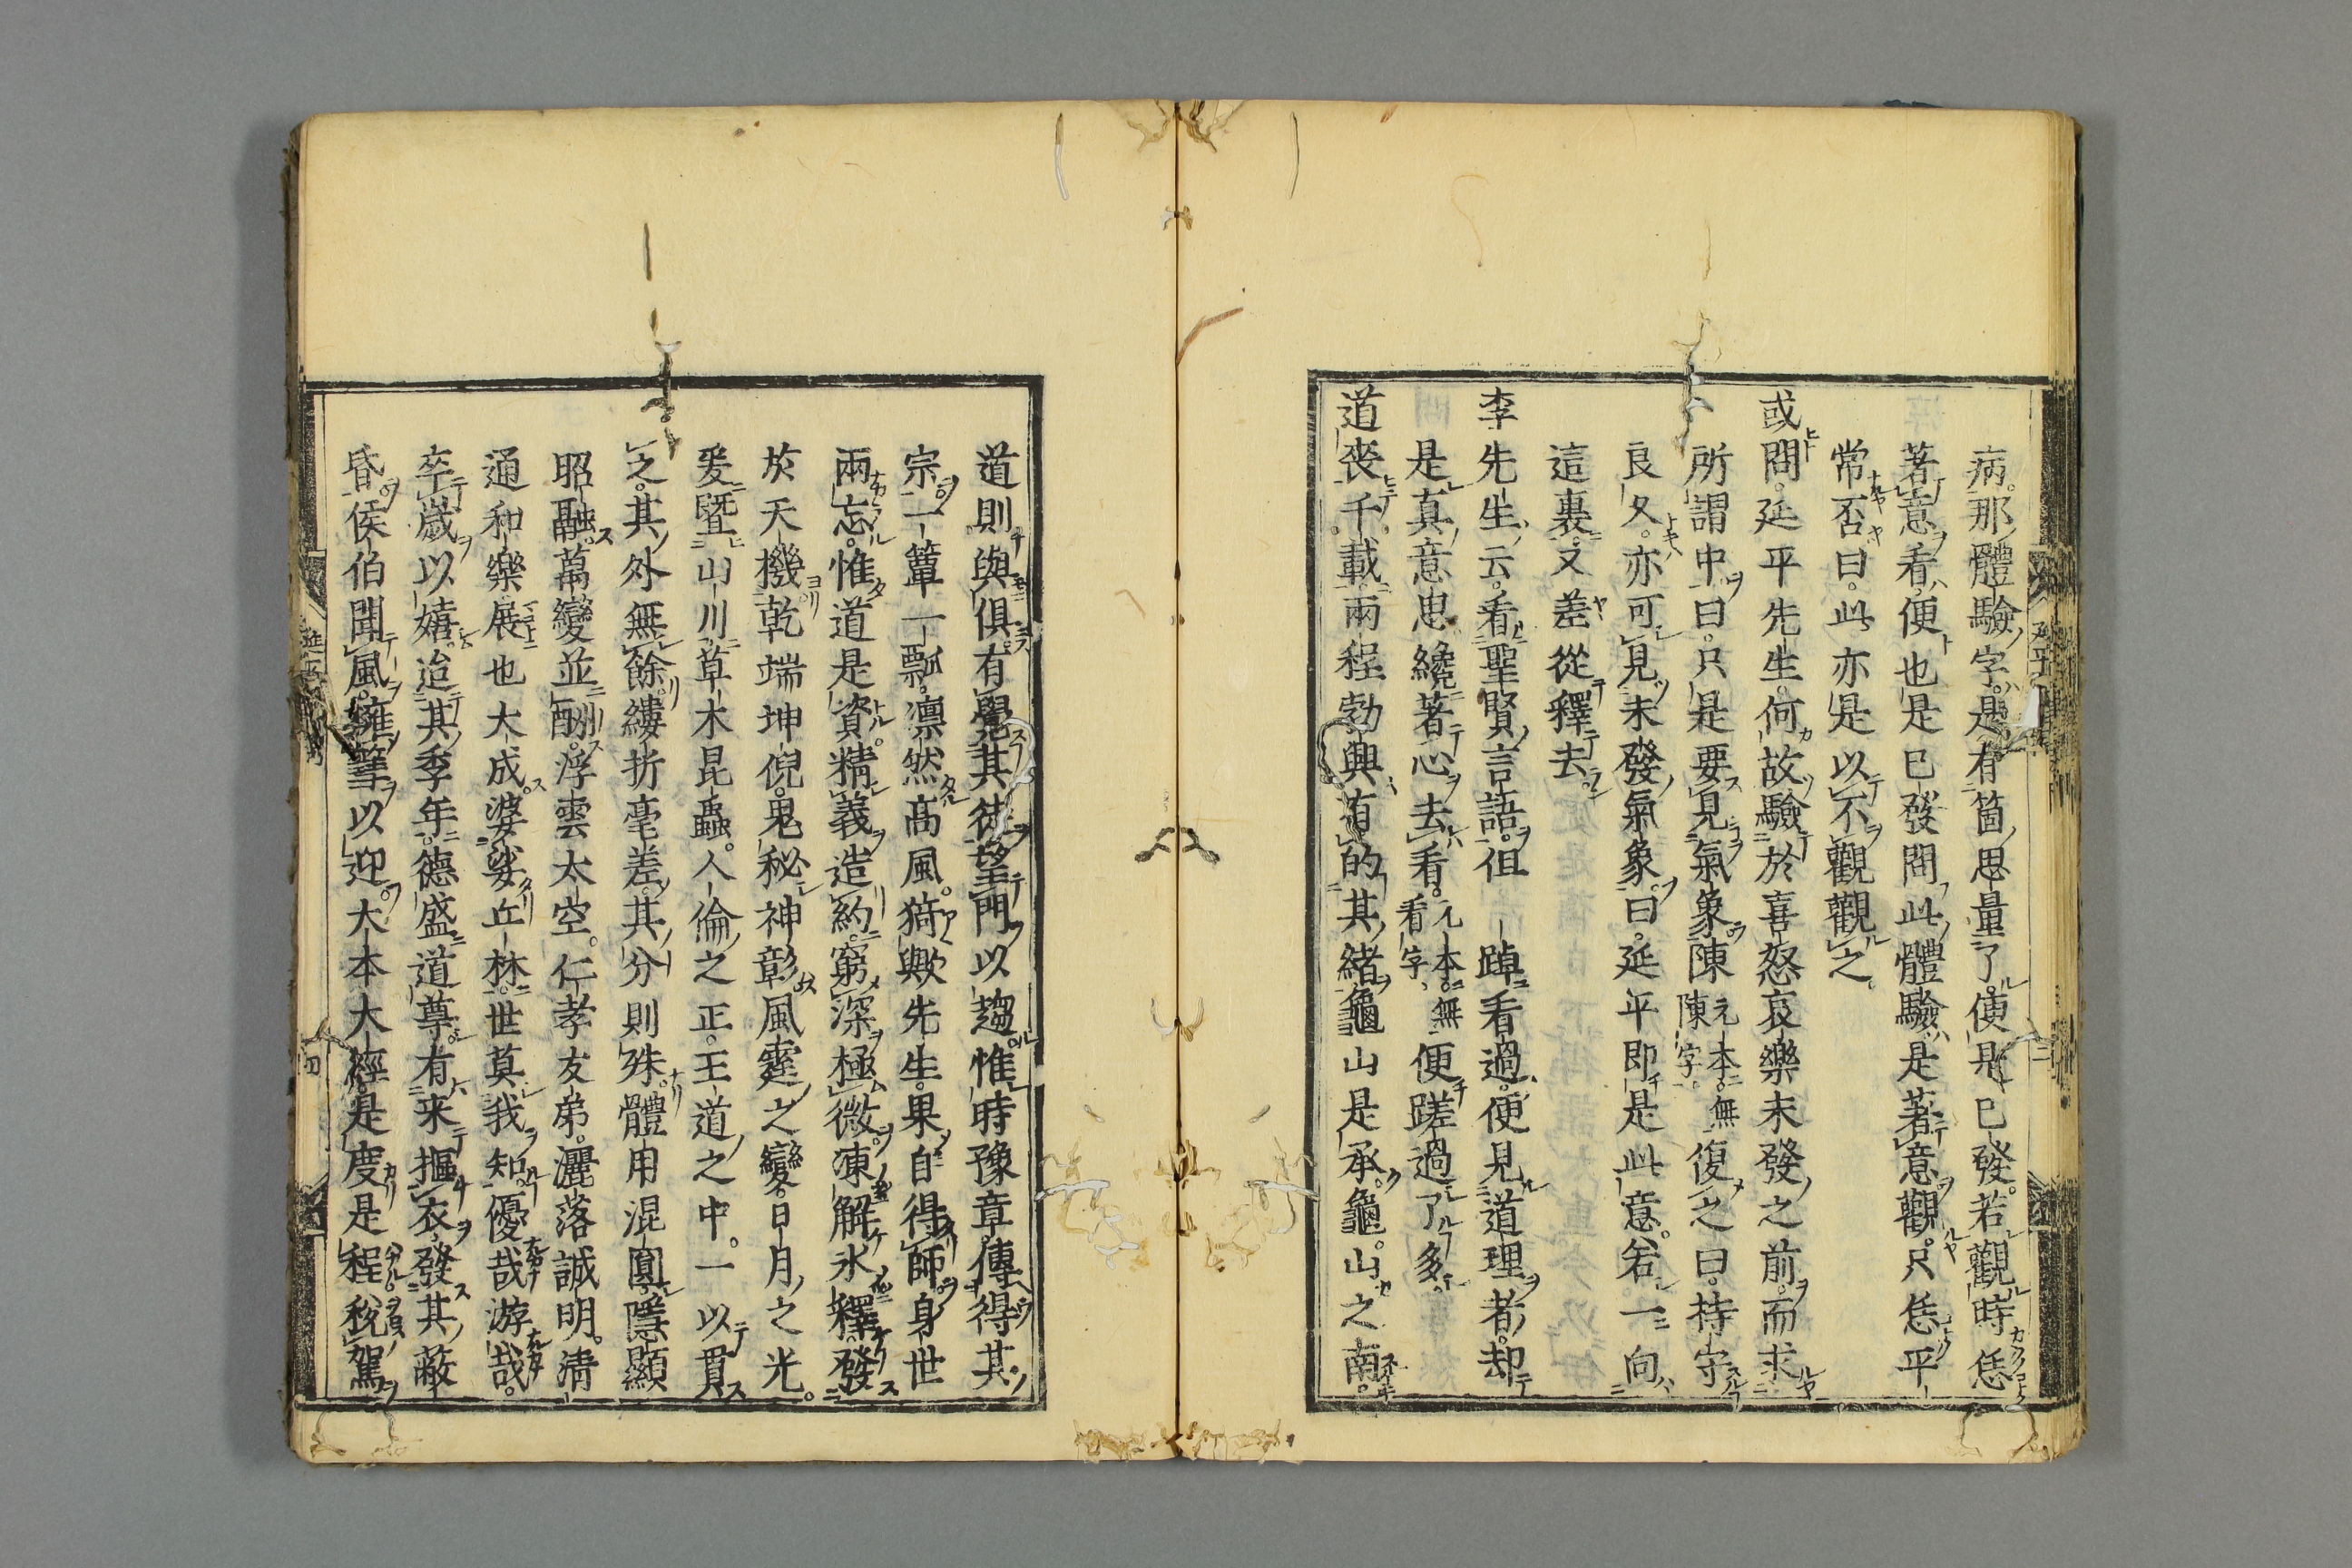 病。那體驗字。是有箇思量了。便是已發。若觀時恁
著意看。便也是已發。問此體驗。是著意觀。只恁平
常否。曰。此亦是以不觀觀之。
或問。延平先生。何故驗於喜怒哀樂未發之前。而求
所謂中。曰。只是要見氣象。陳元本無陳字。復之曰。持守
良久。亦可見未發氣象。曰。延平即是此意。若一向
這裏。又差從釋去。
李先生云。看聖賢言語。但一踔看過。便見道理者。却
是真意思。纔著心去看。元本無看字。便蹉過了多。
道喪千載。兩程勃興。有的其緒。龜山是承。龜山之南。
道則與俱。有覺其徒。望門以趨。惟時豫章。傳得其
宗。一簞一瓢。凛然高風。猗歟先生。果自得師。身世
兩忘。惟道是資。精義造約。窮深極微。凍解氷釋。發
於天機。乾端坤倪。鬼秘神彰。風霆之變。日月之光。
爰暨山川。草木昆蟲。人倫之正。王道之中。一以貫
之。其外無餘。縷折毫差。其分則殊。體用混圓。隱顯
昭融。萬變並酬。浮雲太空。仁孝友弟。灑落誠明。清
通和樂。展也大成。婆娑丘林。世莫我知。優哉游哉。
卒歲以嬉。迨其季年。德盛道尊。有来摳衣。發其蔽
昏。侯伯聞風。擁篲以迎。大本大經。是度是程。稅駕